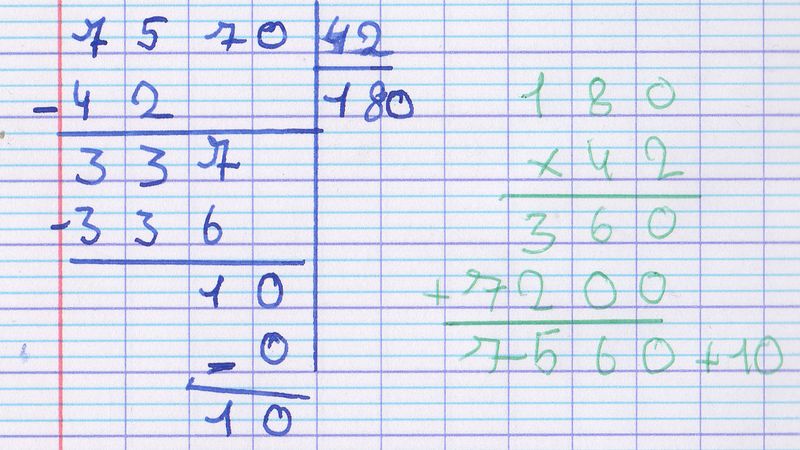 7570 42
- 42 180
337
- 336
10
- 0
10
180
x 42
360
+ 7200
7560 + 10